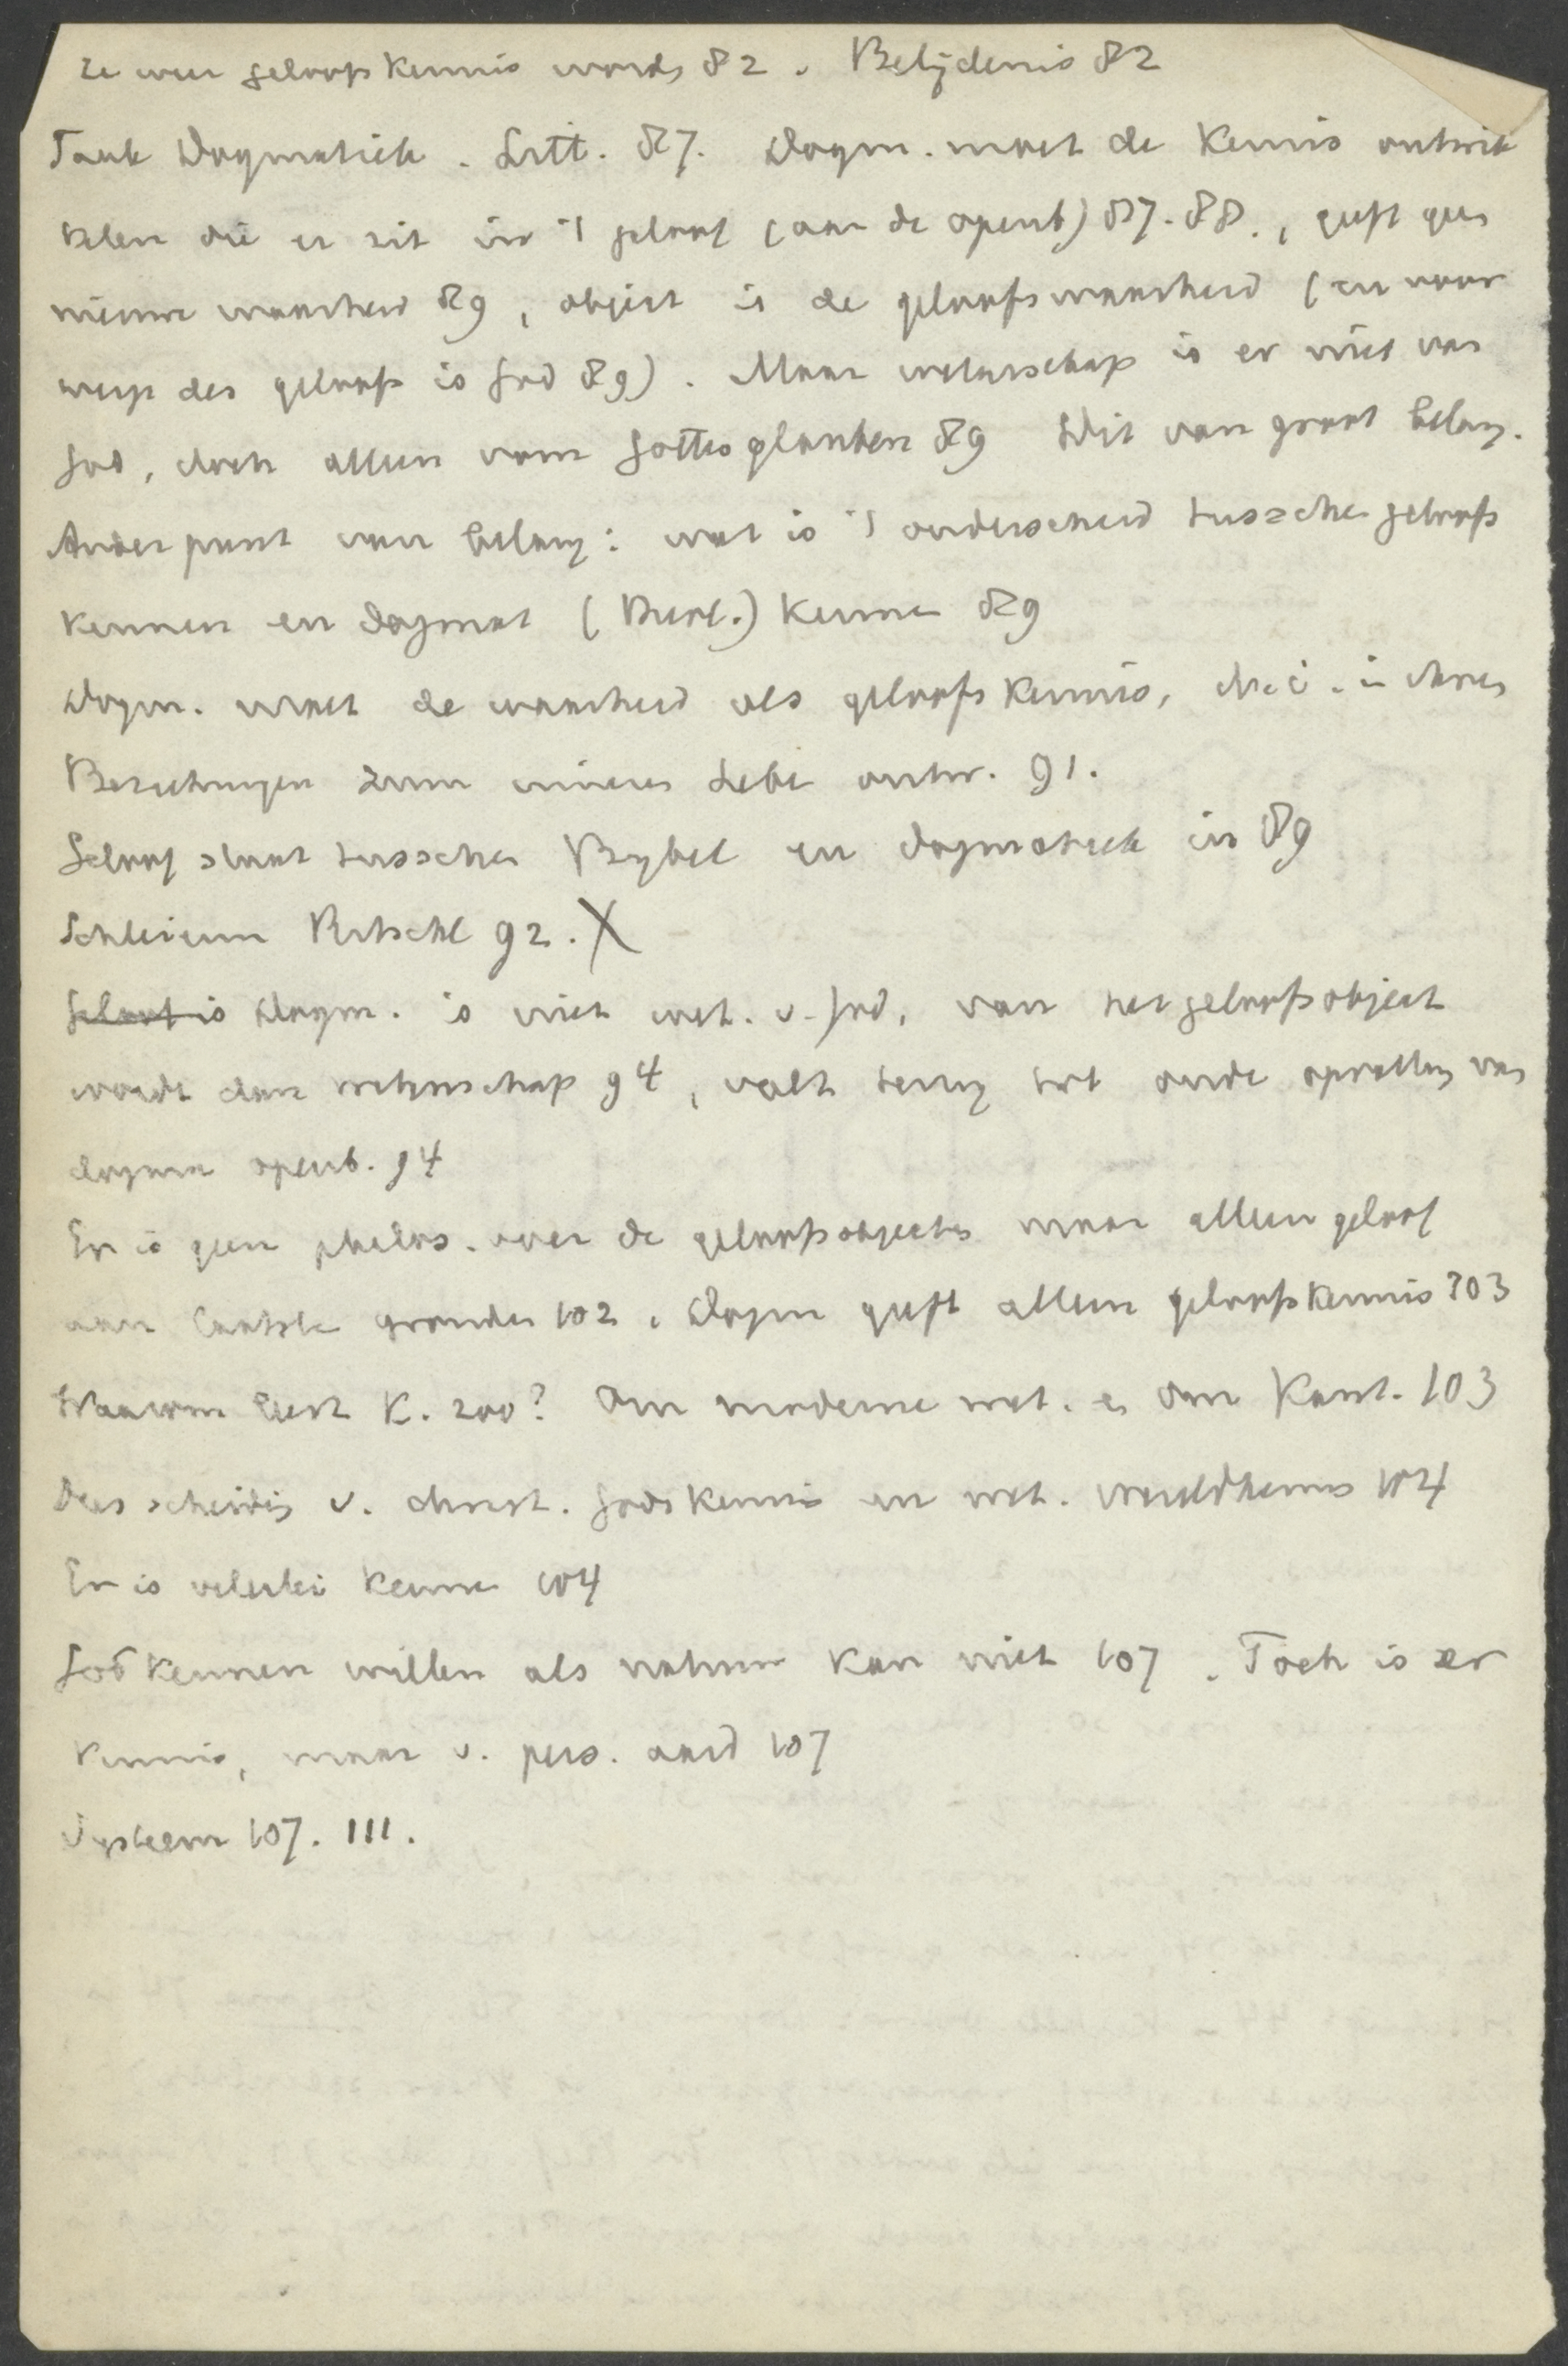 ze weer geloofskennis wordt 82. Belijdenis 82
Taak Dogmatiek. Litt. 87. Dogm. moet de kennis ontwik
kelen die er zit in 't geloof (aan de openb) 87-88., geeft geen
nieuwe waarheid 89, object is de geloofswaarheid (en voor
werp des geloofs is God 89). Maar wetenschap is er niet van
God, doch alleen vom Gottesglauben 89 Dit van groot belang.
Ander punt van belang: wat is 't onderscheid tusschen geloofs
kennen en dogmat kennen 89
Dogm. moet de waarheid als geloofskennis, d.i. in ihren
Beziehungen zum inneren Leben ontw. 91.
Geloof staat tusschen Bybel en dogmatiek in 89
Schleierm Ritschl 92. X
Geloof is Dogm. is niet wet. v. God, van het geloofsobject
wordt dan wetenschap 94, valt terug tot oude opvatting van
dogma openb. 94
Er is geen philos. over de geloofsobjecten maar alleen geloof
aan laatste gronden 102. Dogm geeft alleen geloofskennis 103
Waarom leert K. zoo? Om moderne wet. en om Kant. 103
Dus scheiding v. christ. Godskennis en wet. wereldkennis 104
Er is velerlei kennen 104
God kennen willen als natuur kan niet 107. Toch is er
kennis, maar v. pers. aard 107
Systeem 107. 111.